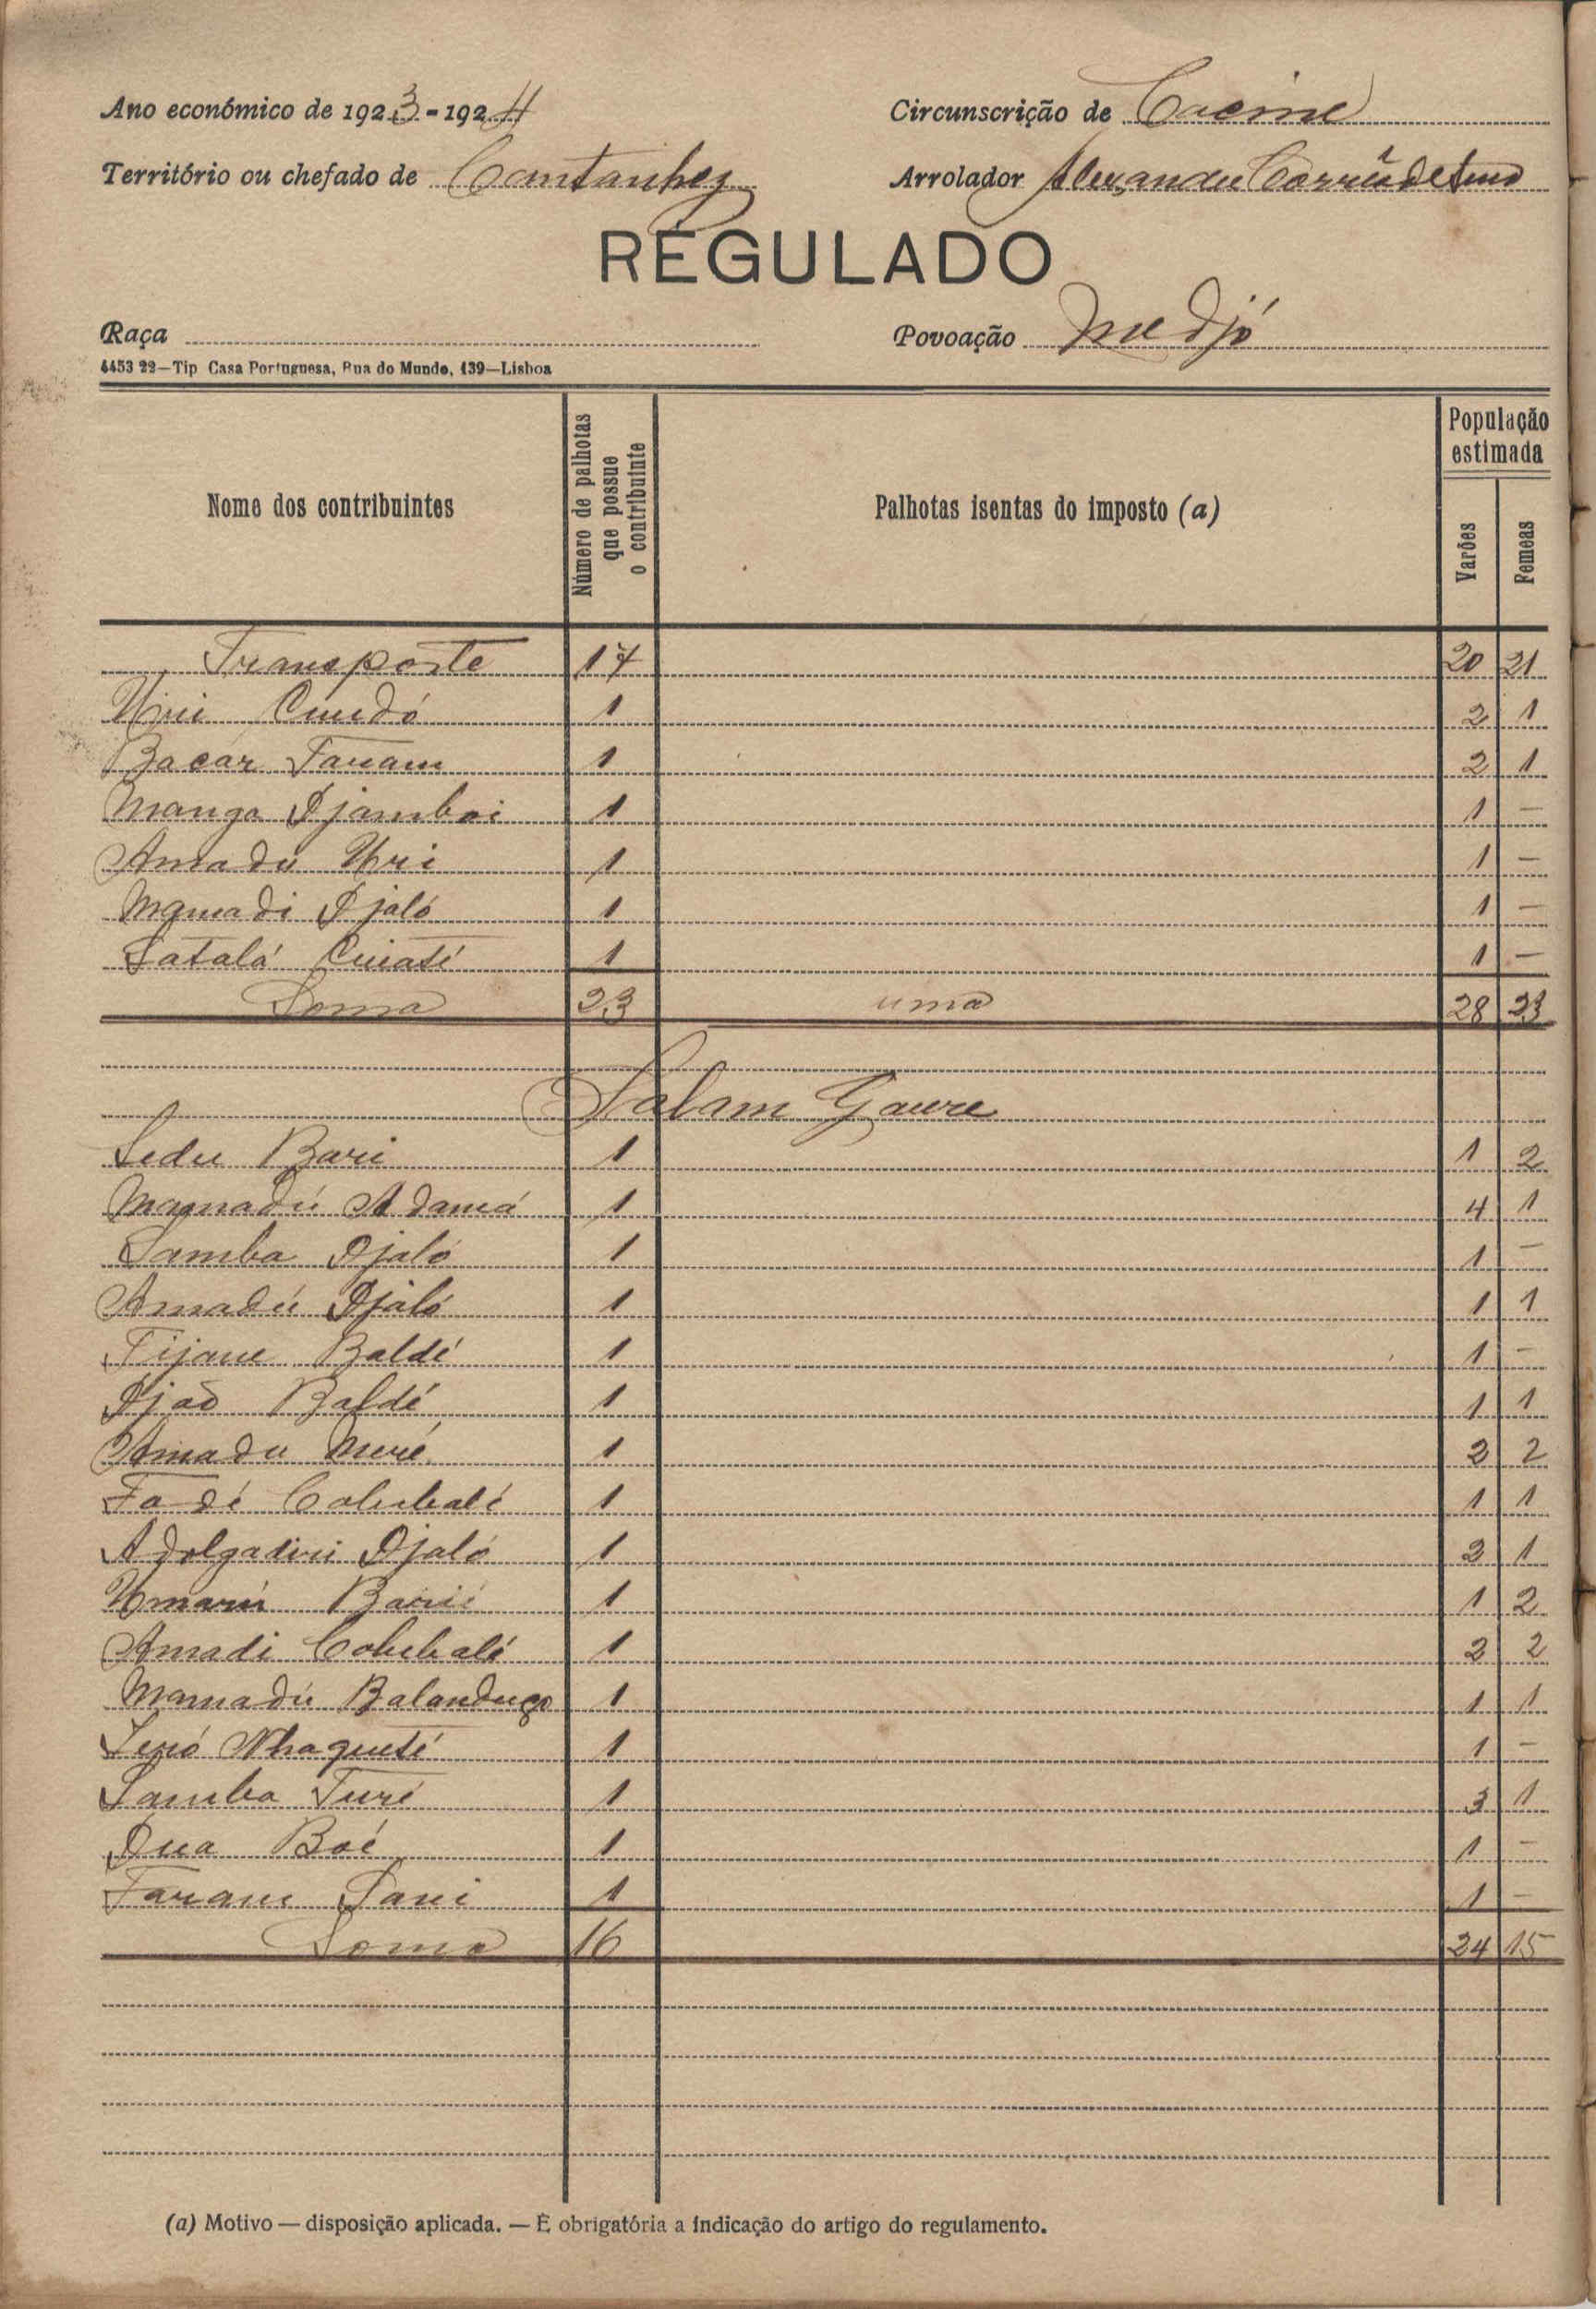 Ano económico de 1923-1924 Circunscrição de Cacine
Território ou chefado de Cantanhez Arrolador Alexandre
REGULADO
Raça Povoação Medjó
4453 22—Tip Casa Portuguesa, Rua do Mundo, 139—Lisboa
Nome dos contribuintes
Número de palhotas que possue o contribuinte
Palhotas isentas do imposto (a)
População estimada
Varões
Femeas
Transporte 17 20 21
Uri Cundó 1 2 1
Bacar Fanam 1 2 1
Manga Djamboi 1 1 —
Amadu Uri 1 1 —
Mamadi Djaló 1 1 —
Satalá Cuiaté 1 1 —
Soma 23 uma 28 23
Salam Gaure
Sedu Bari 1 1 2
Mamadú Adamá 1 4 1
Samba Djaló 1 1 —
Amadú Djaló 1 1 1
Tijane Baldé 1 1 —
Djaō Baldé 1 1 1
Amadu Nuré 1 2 2
Fodé Colubali 1 1 1
Adolgadiri Djaló 1 2 1
Umarú Barié 1 1 2
Amadi Colubali 1 2 2
Mamadú Balandugo 1 1 1
Seró Nhaqueté 1 1 —
Samba Turé 1 3 1
Dua Boé 1 1 —
Faram Sani 1 1 —
Soma 16 24 15
(a) Motivo — disposição aplicada. — É obrigatória a indicação do artigo do regulamento.